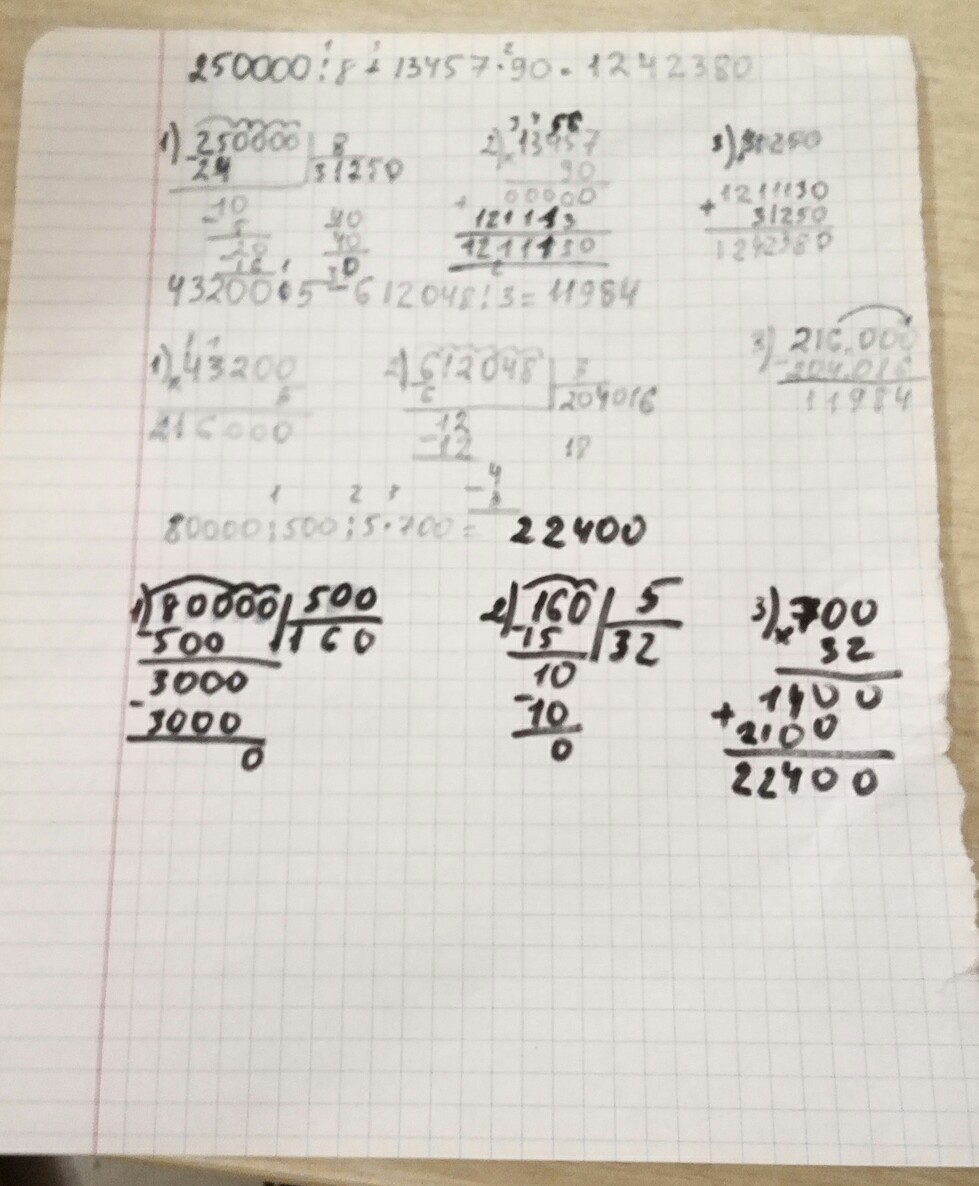 250000:8+13457·90=1242380
1) 250000 | 8
-24 31250
-10
8
-20
16
40
40
0
2) 13457
× 90
00000
+ 121113
1211130
3) 31250
1211130
+ 31250
1242380
43200·5-612048:3=11984
1) 43200
× 5
216000
2) 612048 | 3
-6 204016
12
-12
18
-4
3
3) 216.000
-204.016
11984
1 2 3
80000:500:5·700= 22400
1) 80000 | 500
-500 160
3000
-3000
0
2) 160 | 5
-15 32
10
-10
0
3) 700
× 32
1400
+ 2100
22400